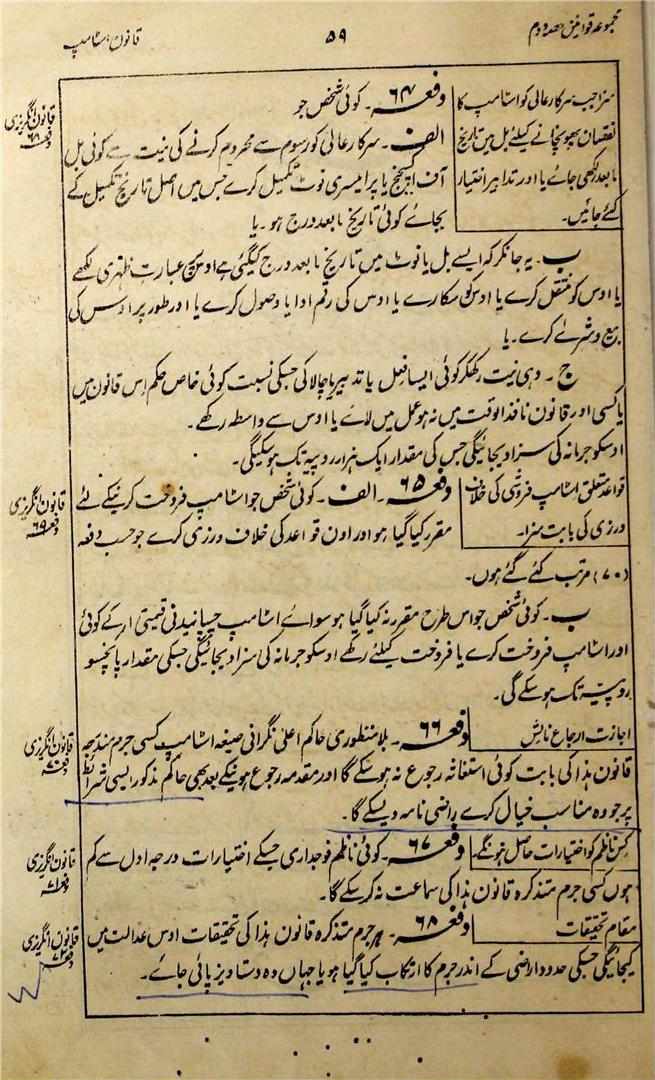 مجموعہ قوانین حصہ دوم
۵۹
قانون اسٹامپ
سزا جب سرکار عالی کو اسٹامپ کا
نقصان پہونچانے کیلئے بل میں تاریخ
مابعد لکھی جائے یا اور تدابیر اختیار
کئے جائیں۔
قانون انگریزی
دفعہ ۶۸
دفعہ ۶۴۔ کوئی شخص جو
الف۔ سرکار عالی کو رسوم سے محروم کرنے کی نیت سے کوئی بل
آف اکسچینج یا پرامیسری نوٹ تکمیل کرے جس میں اصل تاریخ تکمیل کے
بجائے کوئی تاریخ مابعد درج ہو۔ یا
ب۔ یہ جانکر کہ ایسے بل یا نوٹ میں تاریخ مابعد درج کیگئی ہے اوس پر عبارت ظہری لکھے
یا اوس کو منتقل کرے یا اوس کو سکارے یا اوس کی رقم ادا یا وصول کرے یا اور طور پر اوس کی
بیع و شرئے کرے۔ یا
ج۔ وہی نیت رکھکر کوئی ایسا فعل یا تدبیر یا چالاکی جسکی نسبت کوئی خاص حکم اس قانون میں
یا کسی اور قانون نافذ الوقت میں نہ ہو عمل میں لائے یا اوس سے واسطہ رکھے۔
اوسکو جرمانہ کی سزا دیجائیگی جس کی مقدار ایک ہزار روپیہ تک ہوسکیگی۔
قواعد متعلق اسٹامپ فروشی کی خلاف
ورزی کی بابت سزا۔
قانون انگریزی
دفعہ ۶۹
دفعہ ۶۵۔ الف۔ کوئی شخص جو اسٹامپ فروخت کرنیکے لئے
مقرر کیا گیا ہو اور اون قواعد کی خلاف ورزی کرے جو حسب دفعہ
(۷۰) مرتب کئے گئے ہوں۔
ب۔ کوئی شخص جو اس طرح مقرر نہ کیا گیا ہو سوائے اسٹامپ چسپانیدنی قیمتی ۱؍ کے کوئی
اور اسٹامپ فروخت کرے یا فروخت کیلئے رکھے اوسکو جرمانہ کی سزا دیجائیگی جسکی مقدار پانچسو
روپیہ تک ہوسکے گی۔
اجازت ارجاع نالش
قانون انگریزی
دفعہ ۷۰
دفعہ ۶۶۔ بلا منظوری حاکم اعلیٰ نگرانی صیغہ اسٹامپ کسی جرم مندرجہ
قانون ہذا کی بابت کوئی استغاثہ رجوع نہ ہوسکے گا اور مقدمہ رجوع ہونیکے بعد بھی حاکم مذکور ایسی شرائط
پر جو وہ مناسب خیال کرے راضی نامہ دیسکے گا۔
کس ناظم کو اختیارات حاصل ہونگے۔
قانون انگریزی
دفعہ ۷۱
دفعہ ۶۷۔ کوئی ناظم فوجداری جسکے اختیارات درجہ اول سے کم
ہوں کسی جرم متذکرہ قانون ہذا کی سماعت نہ کرسکے گا۔
مقام تحقیقات
قانون انگریزی
دفعہ ۷۲
دفعہ ۶۸۔ ہر جرم متذکرہ قانون ہذا کی تحقیقات اوس عدالت میں
کیجائیگی جسکی حدود اراضی کے اندر جرم کا ارتکاب کیا گیا ہو یا جہاں وہ دستاویز پائی جائے۔